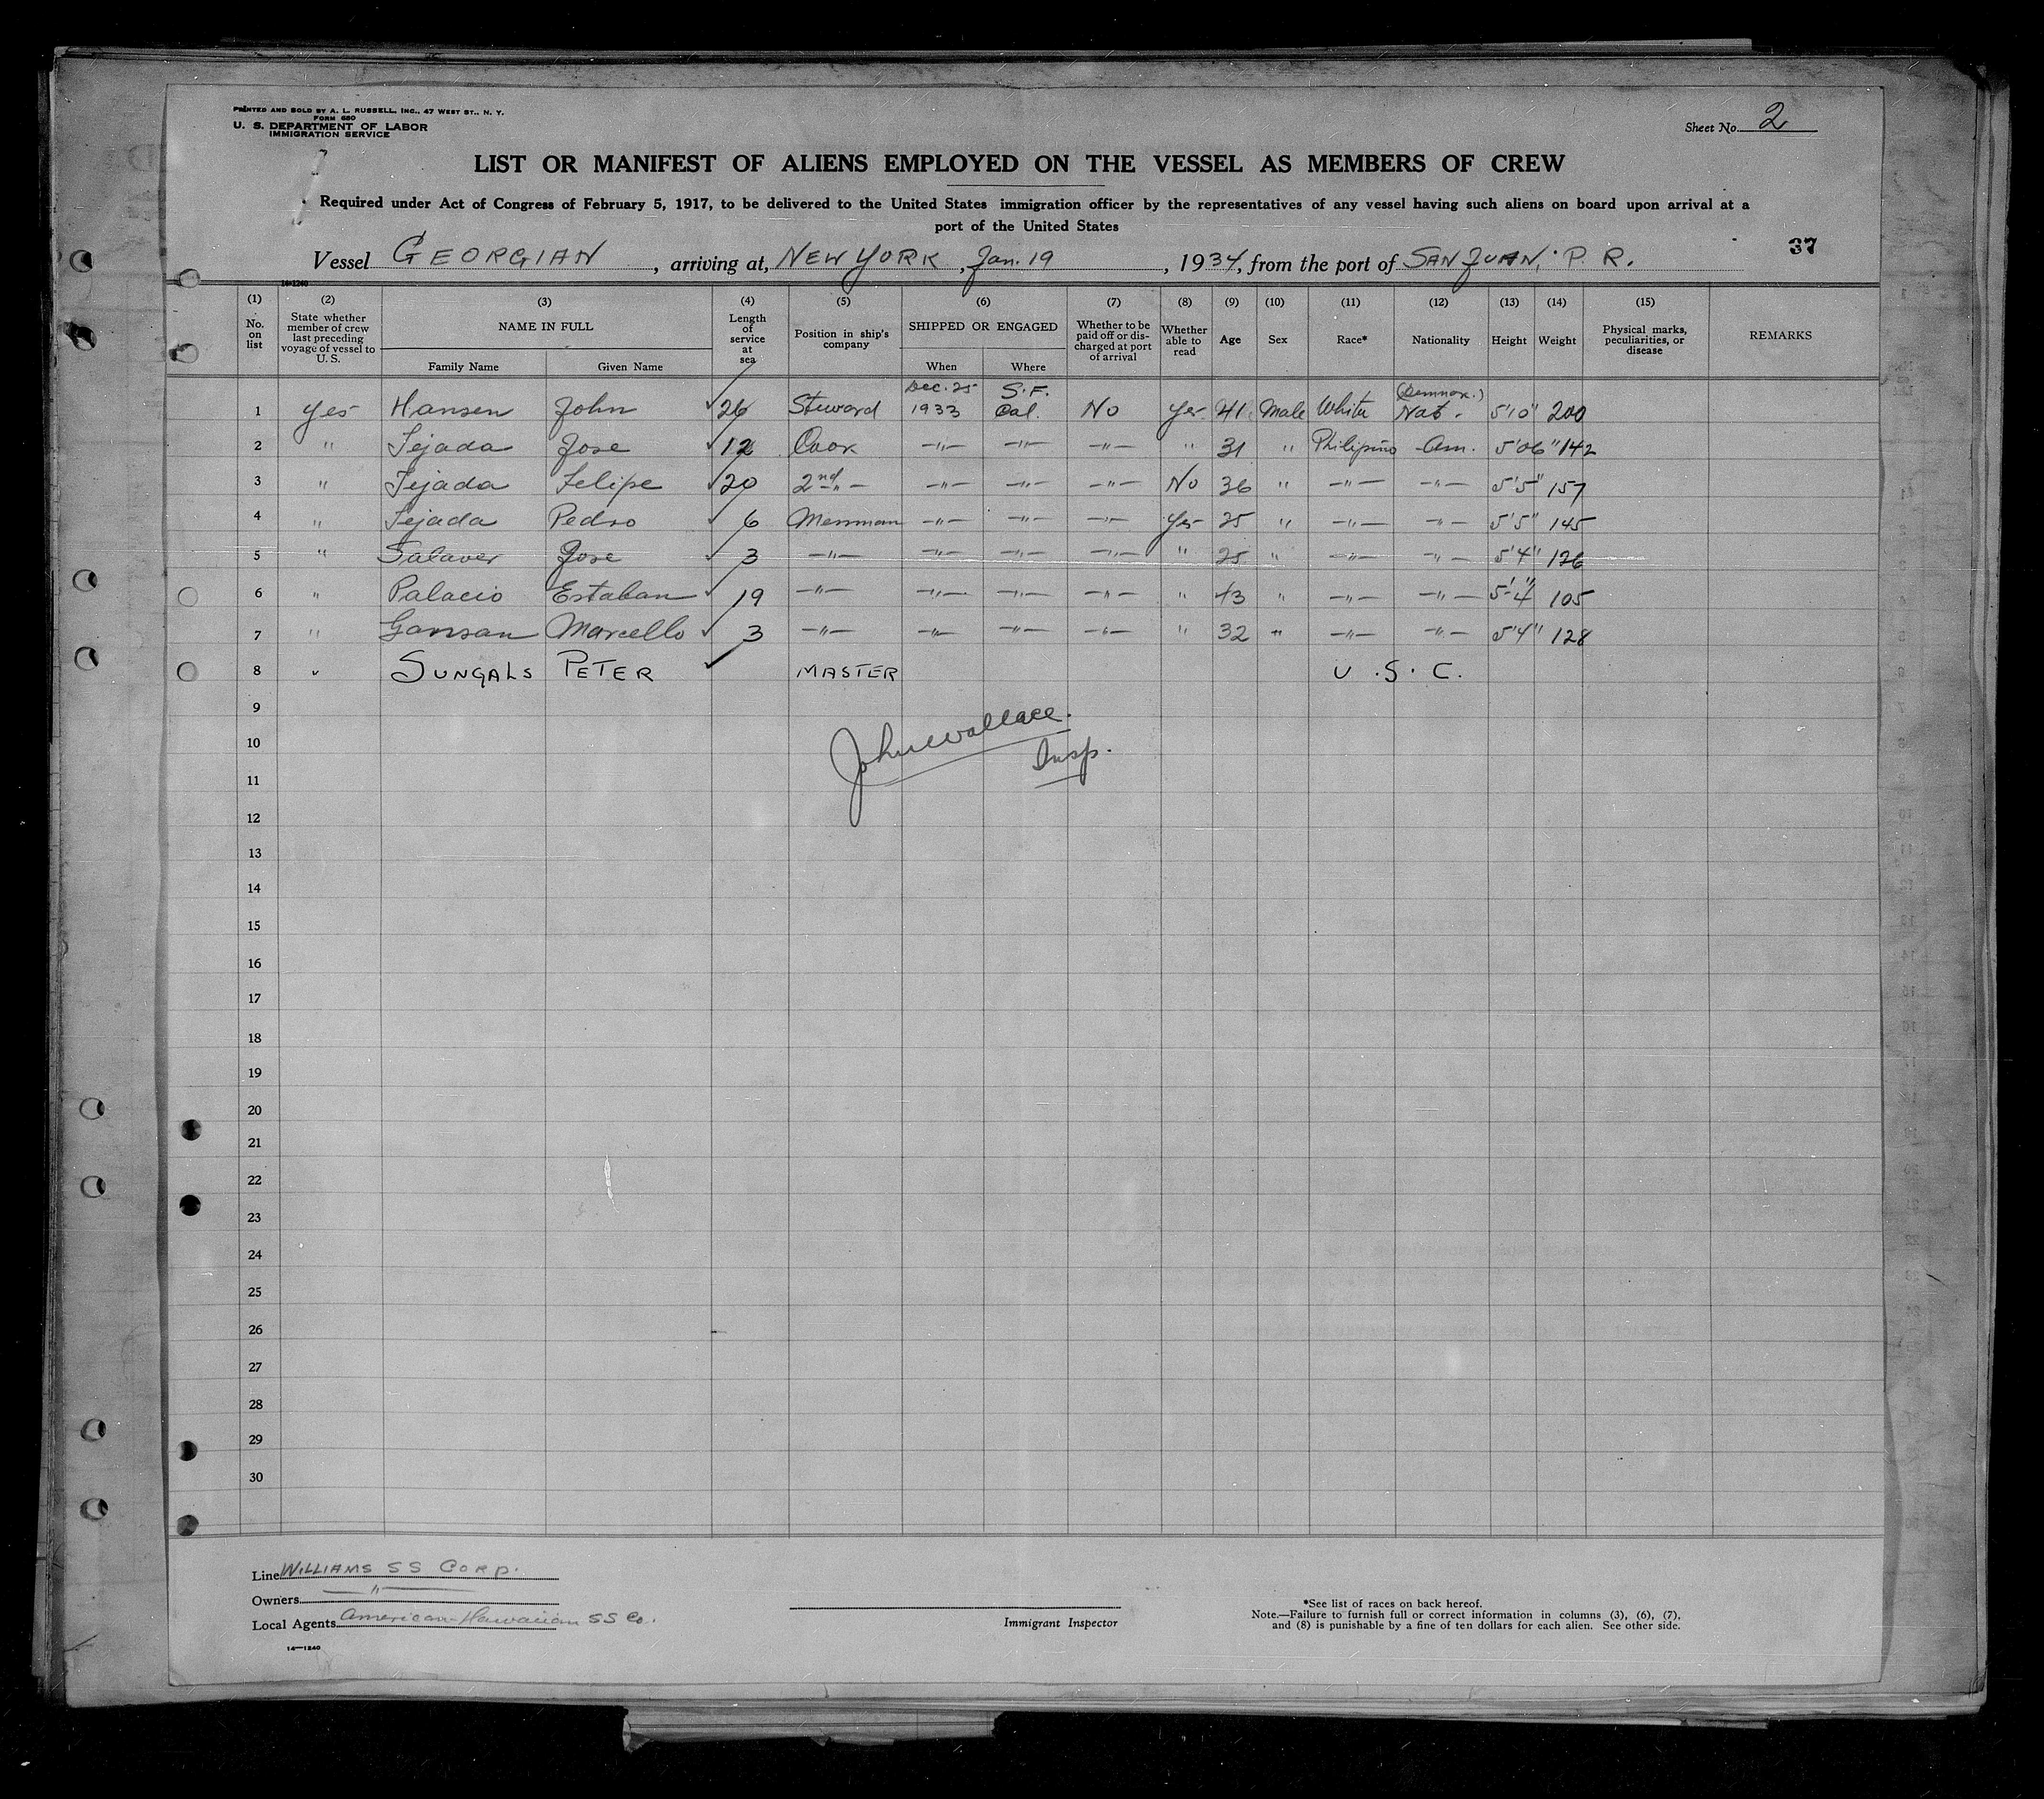 PRINTED AND SOLD BY A. L. RUSSELL, INC., 47 WEST ST., N. Y.
FORM 680
U. S. DEPARTMENT OF LABOR
IMMIGRATION SERVICE
Sheet No. 2
LIST OR MANIFEST OF ALIENS EMPLOYED ON THE VESSEL AS MEMBERS OF CREW
Required under Act of Congress of February 5, 1917, to be delivered to the United States immigration officer by the representatives of any vessel having such aliens on board upon arrival at a
port of the United States
37
Vessel GEORGIAN, arriving at, NEW YORK, Jan. 19, 1934, from the port of SAN JUAN, P. R.
14-1240
(1) No. on list (2) State whether member of crew last preceding voyage of vessel to U. S. (3) NAME IN FULL Family Name Given Name (4) Length of service at sea (5) Position in ship's company (6) SHIPPED OR ENGAGED When Where (7) Whether to be paid off or discharged at port of arrival (8) Whether able to read (9) Age (10) Sex (11) Race* (12) Nationality (13) Height (14) Weight (15) Physical marks, peculiarities, or disease REMARKS
1 Yes Hansen John ✓ 26 Steward Dec. 25 1933 S.F. Cal. No Yes 41 Male White (Denmark.) Nat. 5'10" 200
2 " Tejada Jose ✓ 12 Cook -"- -"- -"- " 31 " Philipino Am. 5'06" 142
3 " Tejada Felipe ✓ 20 2nd -"- -"- -"- -"- No 36 " -"- -"- 5'5" 157
4 " Tejada Pedro ✓ 6 Messman -"- -"- -"- Yes 25 " -"- -"- 5'5" 145
5 " Salaver Jose ✓ 3 -"- -"- -"- -"- " 25 " -"- -"- 5'4" 126
6 " Palacio Estaban ✓ 19 -"- -"- -"- -"- " 43 " -"- -"- 5'4" 105
7 " Gansan Marcello ✓ 3 -"- -"- -"- -"- " 32 " -"- -"- 5'4" 128
8 ✓ SUNGALS PETER ✓ MASTER U.S.C.
9
John Wallace.
10
Insp.
11
12
13
14
15
16
17
18
19
20
21
22
23
24
25
26
27
28
29
30
Line WILLIAMS SS CORP.
Owners -"-
Local Agents American-Hawaiian SS Co.
14—1240
Immigrant Inspector
*See list of races on back hereof.
Note.—Failure to furnish full or correct information in columns (3), (6), (7),
and (8) is punishable by a fine of ten dollars for each alien. See other side.